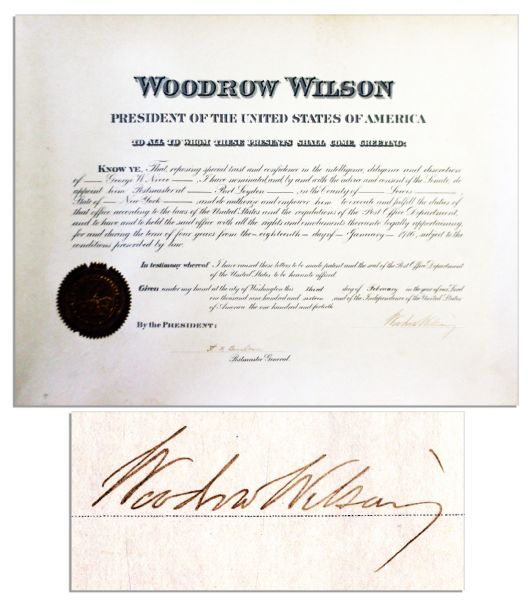 WOODROW WILSON
PRESIDENT OF THE UNITED STATES OF AMERICA
TO ALL TO WHOM THESE PRESENTS SHALL COME, GREETING:
KNOW YE, That, reposing special trust and confidence in the intelligence, diligence and discretion
of — George W. — , I have nominated, and, by and with the advice and consent of the Senate, do
appoint him Postmaster at — Port Leyden — , in the County of — Lewis — ,
State of — New York — , and do authorize and empower him to execute and fulfill the duties of
that office according to the laws of the United States and the regulations of the Post Office Department,
and to have and to hold the said office with all the rights and emoluments thereunto legally appertaining,
for and during the term of four years from the eighteenth day of January 1916, subject to the
conditions prescribed by law.
In testimony whereof I have caused these letters to be made patent and the seal of the Post Office Department
of the United States to be hereunto affixed.
Given under my hand at the city of Washington this third day of February in the year of our Lord
one thousand nine hundred and sixteen, and of the Independence of the United States
of America the one hundred and fortieth.
Woodrow Wilson
By the PRESIDENT:
Postmaster General.
Woodrow Wilson